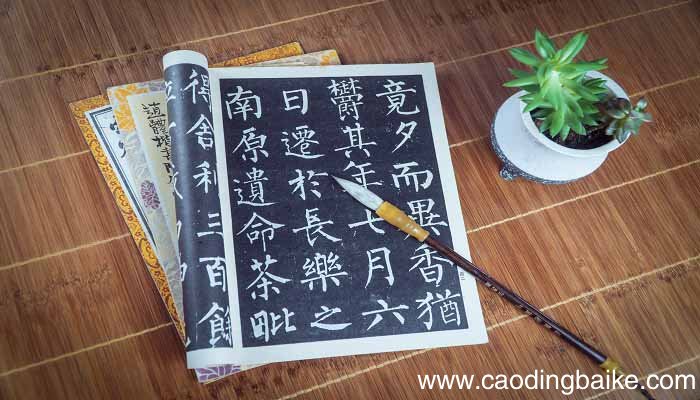 竟夕而異香猶
欝其年七月六
日遷於長樂之
南原遺命茶毗
得舍利三百餘
www.caodingbaike.com